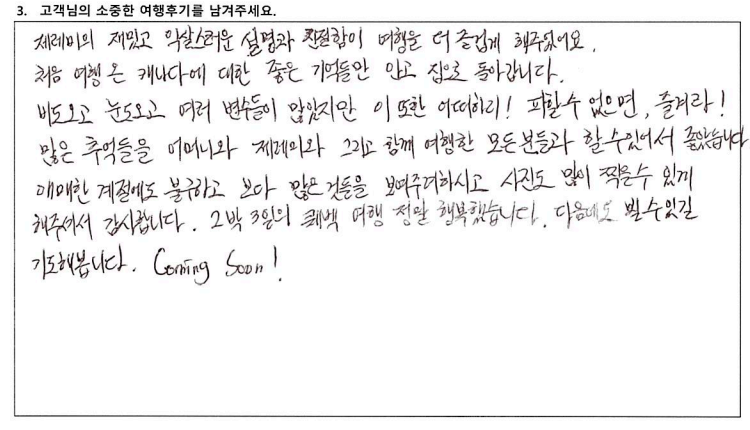 3. 고객님의 소중한 여행후기를 남겨주세요.
제레미의 재밌고 익살스러운 설명과 친절함이 여행을 더 즐겁게 해주었어요.
처음 여행 온 캐나다에 대한 좋은 기억들만 안고 집으로 돌아갑니다.
비도오고 눈도오고 여러 변수들이 많았지만 이 또한 어떠하리! 피할수 없으면, 즐겨라!
많은 추억들을 어머니와 제레미와 그리고 함께 여행한 모든분들과 할수있어서 좋았습니다
애매한 계절에도 불구하고 보다 많은것들을 보여주려하시고 사진도 많이 찍을수 있게
해주셔서 감사합니다. 2박 3일의 퀘백 여행 정말 행복했습니다. 다음에도 뵐수있길
기도해봅니다. Coming Soon!